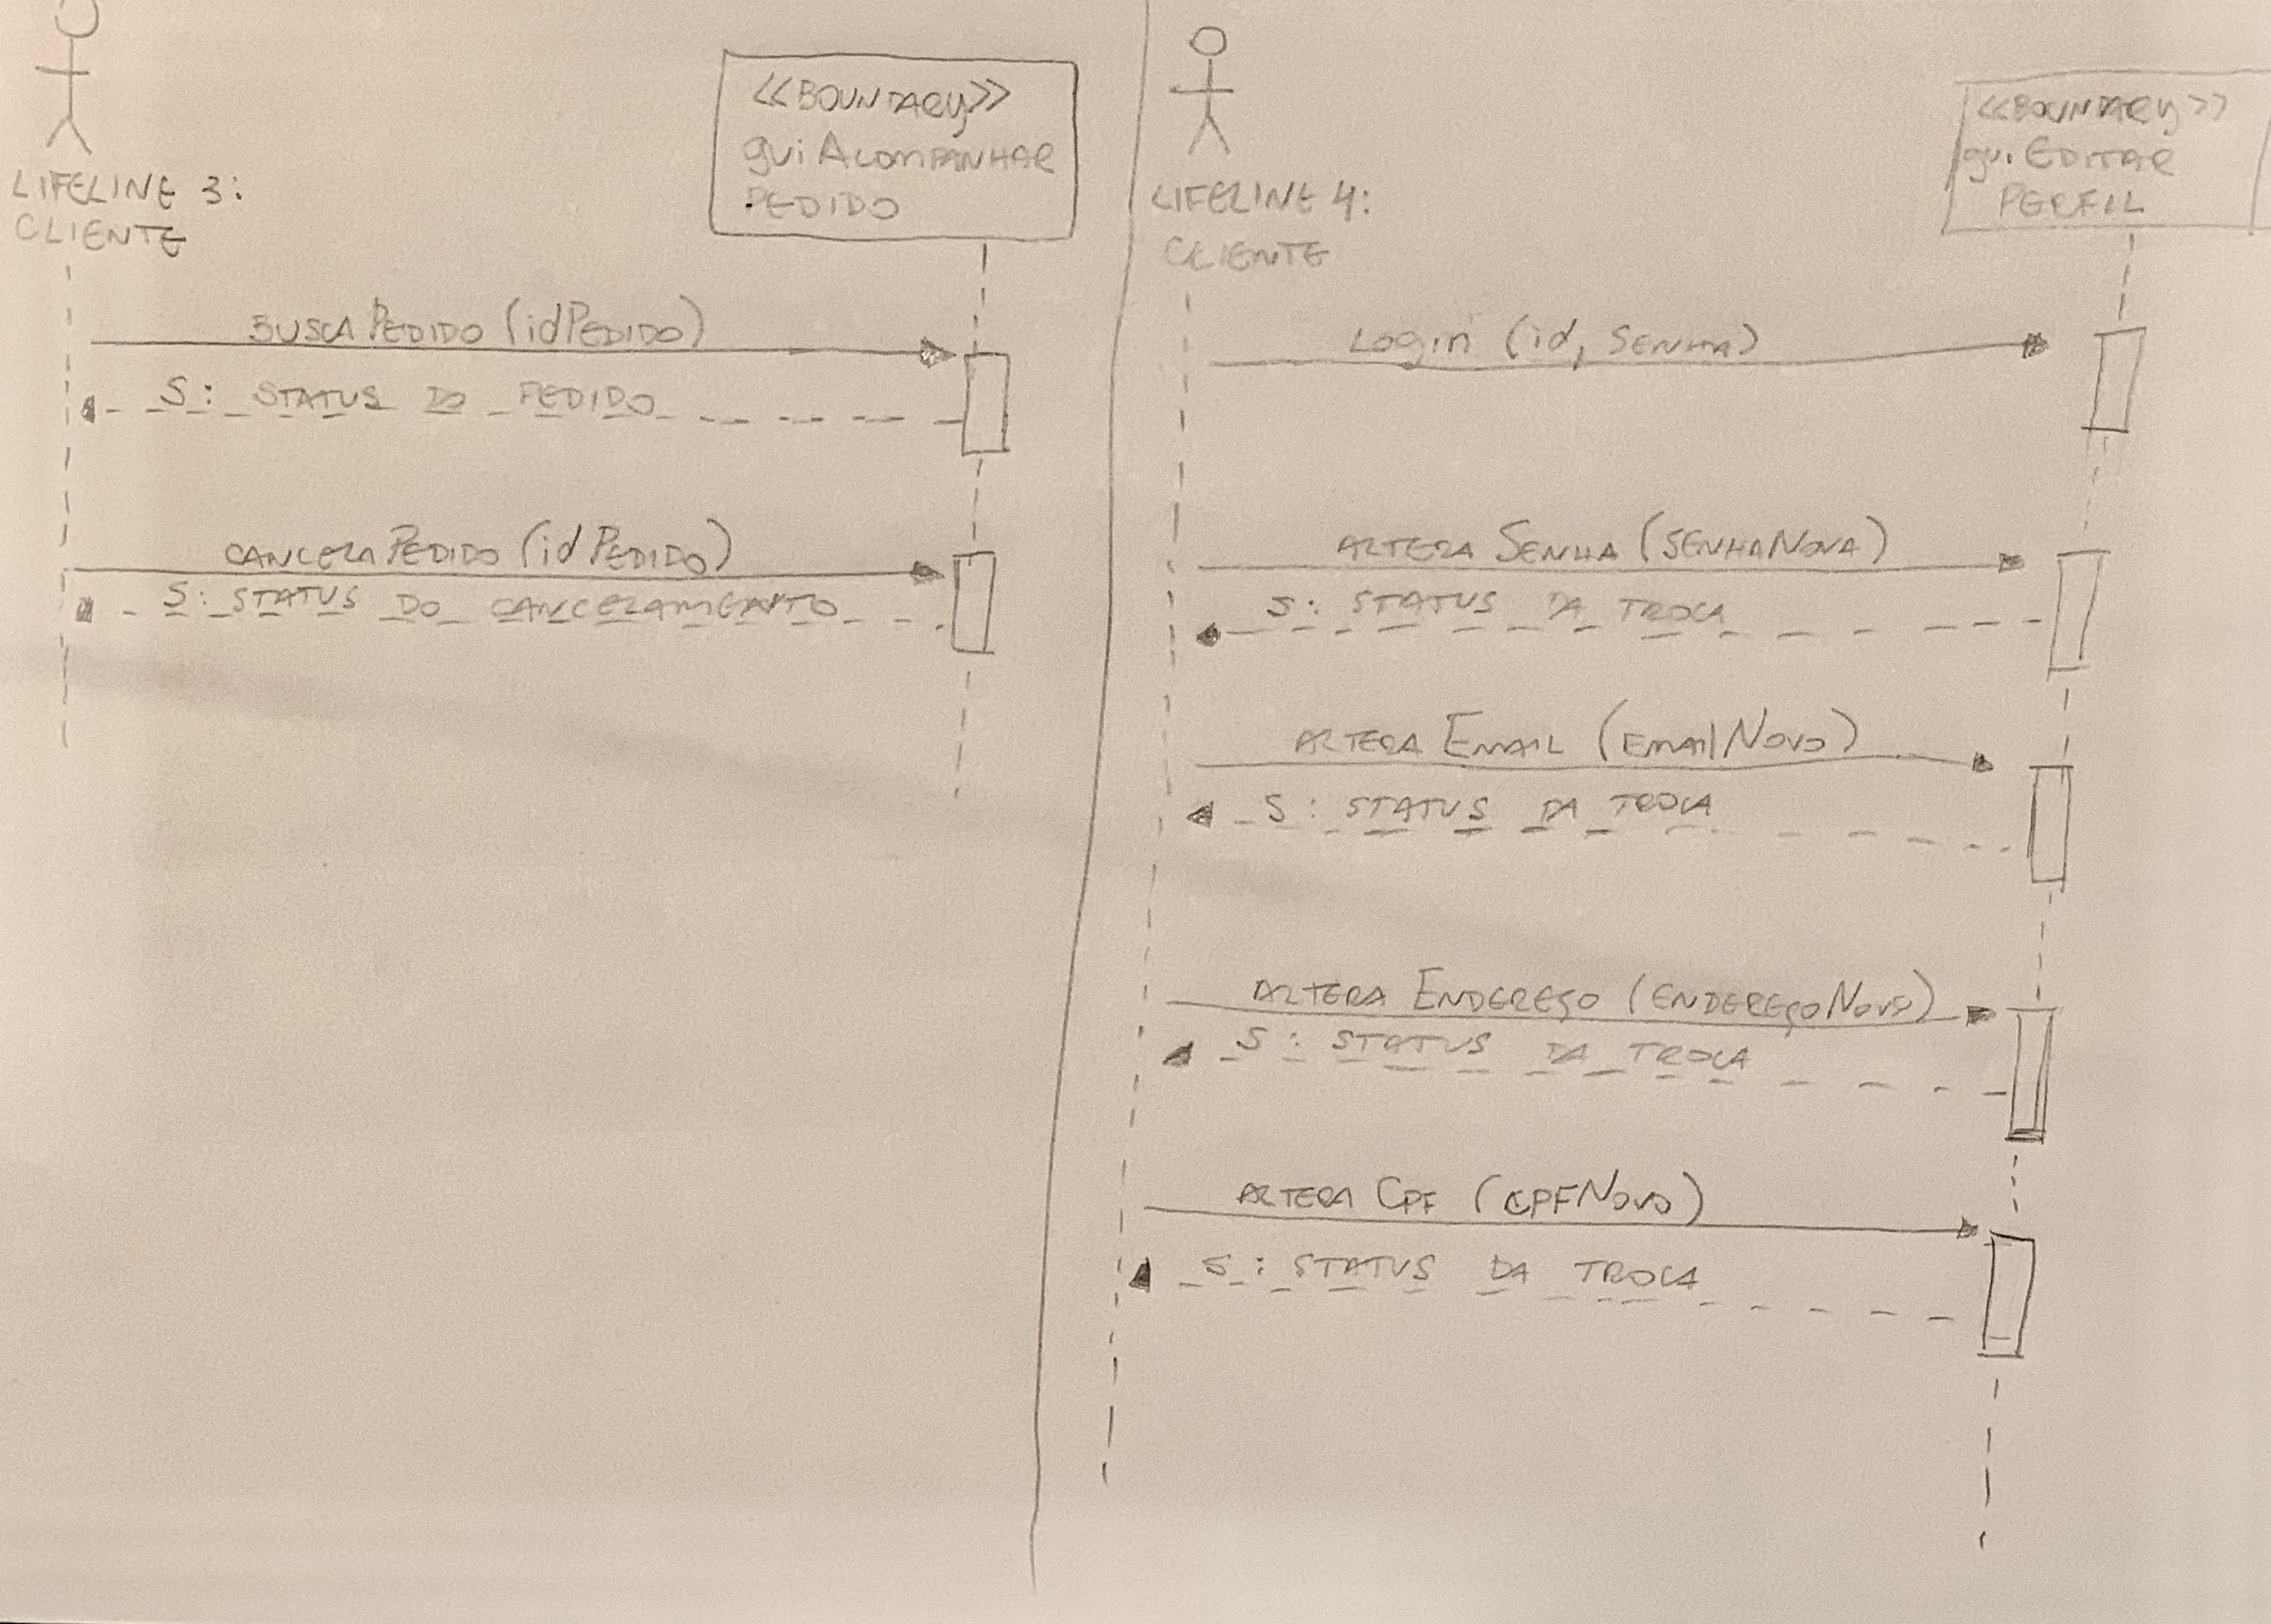 LIFELINE 3:
CLIENTE
<<BOUNDARY>>
guiACOMPANHAR
PEDIDO
BUSCAPEDIDO (idPEDIDO)
S: STATUS DO PEDIDO
CANCELAPEDIDO (idPEDIDO)
S: STATUS DO CANCELAMENTO
LIFELINE 4:
CLIENTE
<<BOUNDARY>>
gui EDITAR
PERFIL
LOGin (id, SENHA)
ALTERA SENHA (SENHANOVA)
S: STATUS DA TROCA
ALTERA EMAIL (EMAILNOVO)
S: STATUS DA TROCA
ALTERA ENDEREÇO (ENDEREÇONOVO)
S: STATUS DA TROCA
ALTERA CPF (CPFNOVO)
S: STATUS DA TROCA